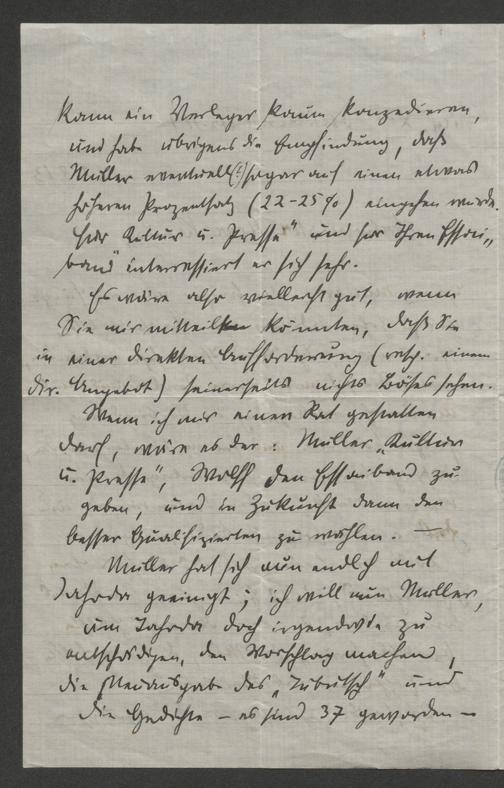 kann ein Verleger kaum konzedieren,
und habe übrigens die Empfindung, daß
Müller eventuell(!) sogar auf einen etwas
höheren Prozentsatz (22-25%) eingehen würde.
Für „Kultur u. Presse" und für Ihren Essai-
band interessiert er sich sehr.
Es wäre also vielleicht gut, wenn
Sie mir mitteilen könnten, daß Sie
in einer direkten Aufforderung (resp. einem
dir. Angebot) seinerseits nichts Böses sehen.
Wenn ich mir einen Rat gestatten
darf, wäre es der: Müller „Kultur
u. Presse", Wolff den Essaiband zu
geben, und in Zukunft dann den
besser Qualifizierten zu wählen. —
Müller hat sich nun endlich mit
Jahoda geeinigt; ich will nun Müller,
um Jahoda doch irgendwie zu
entschädigen, den Vorschlag machen,
die Neuausgabe des „Tubutsch" und
die Gedichte — es sind 37 geworden —